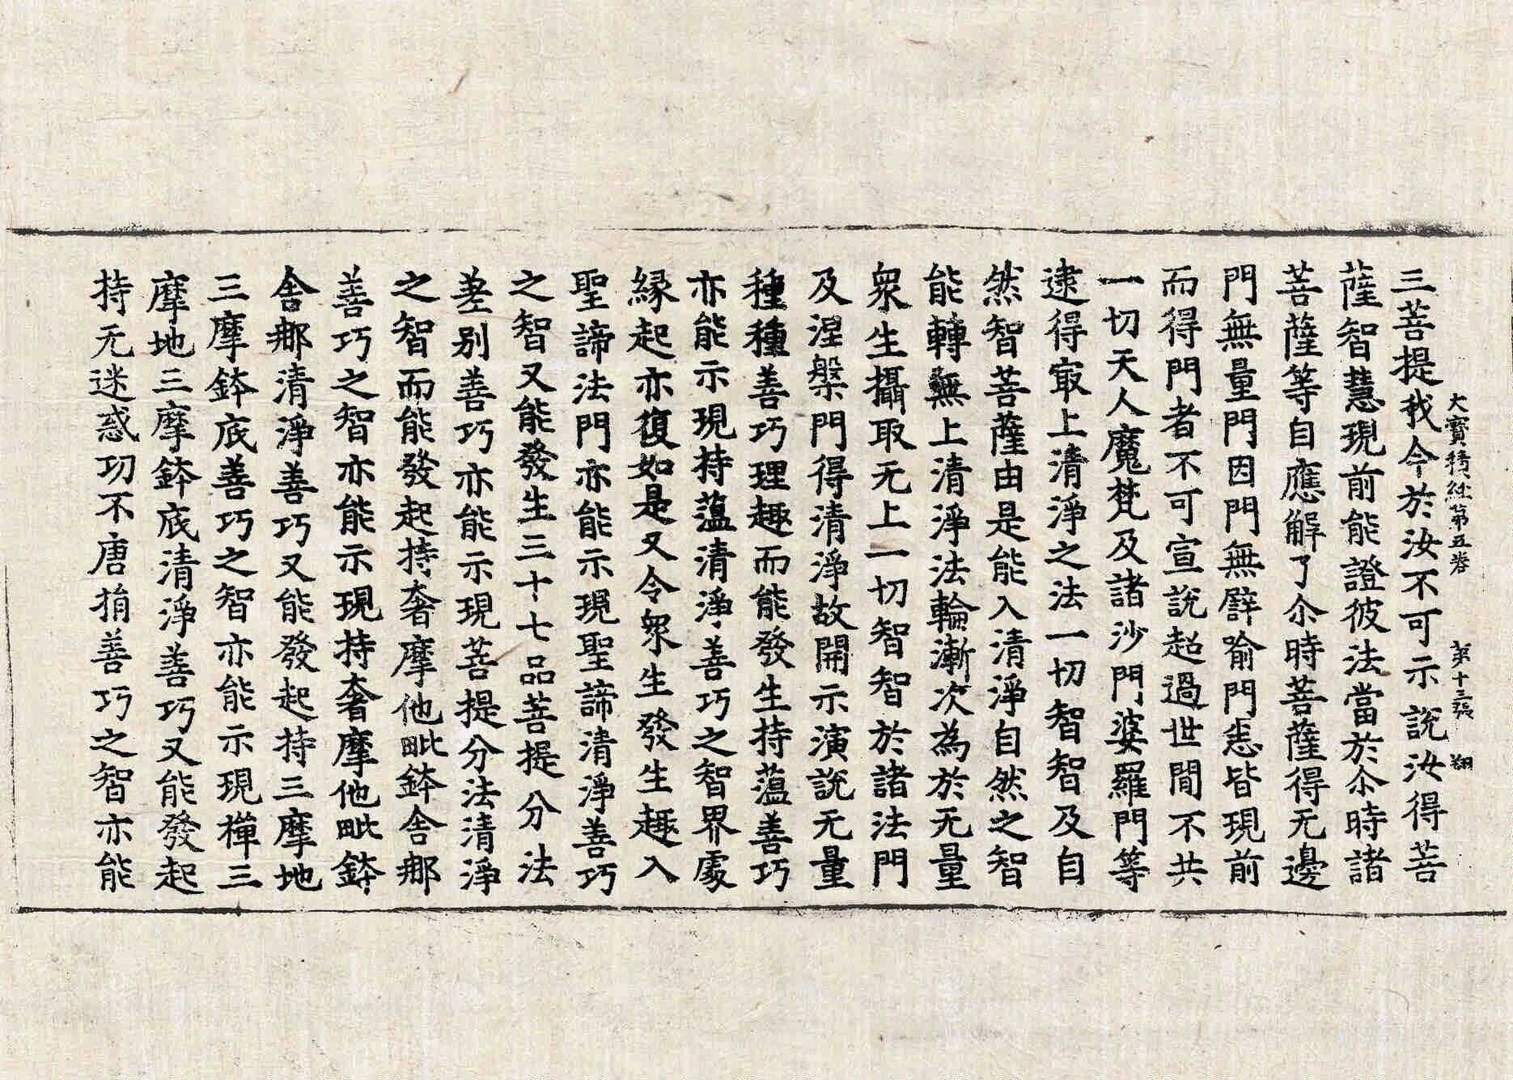 大寶積經第五卷 第十三張 翔
三菩提我今於汝不可示說汝得菩
薩智慧現前能證彼法當於尒時諸
菩薩等自應解了尒時菩薩得无邊
門無量門因門無譬喻門悉皆現前
而得門者不可宣說超過世間不共
一切天人魔梵及諸沙門婆羅門等
逮得冣上清淨之法一切智智及自
然智菩薩由是能入清淨自然之智
能轉無上清淨法輪漸次為於无量
衆生攝取无上一切智智於諸法門
及涅槃門得清淨故開示演說无量
種種善巧理趣而能發生持薀善巧
亦能示現持薀清淨善巧之智界處
緣起亦復如是又令衆生發生趣入
聖諦法門亦能示現聖諦清淨善巧
之智又能發生三十七品菩提分法
差別善巧亦能示現菩提分法清淨
之智而能發起持奢摩他毗鉢舍那
善巧之智亦能示現持奢摩他毗鉢
舍那清淨善巧又能發起持三摩地
三摩鉢底善巧之智亦能示現禪三
摩地三摩鉢底清淨善巧又能發起
持无迷惑功不唐捐善巧之智亦能